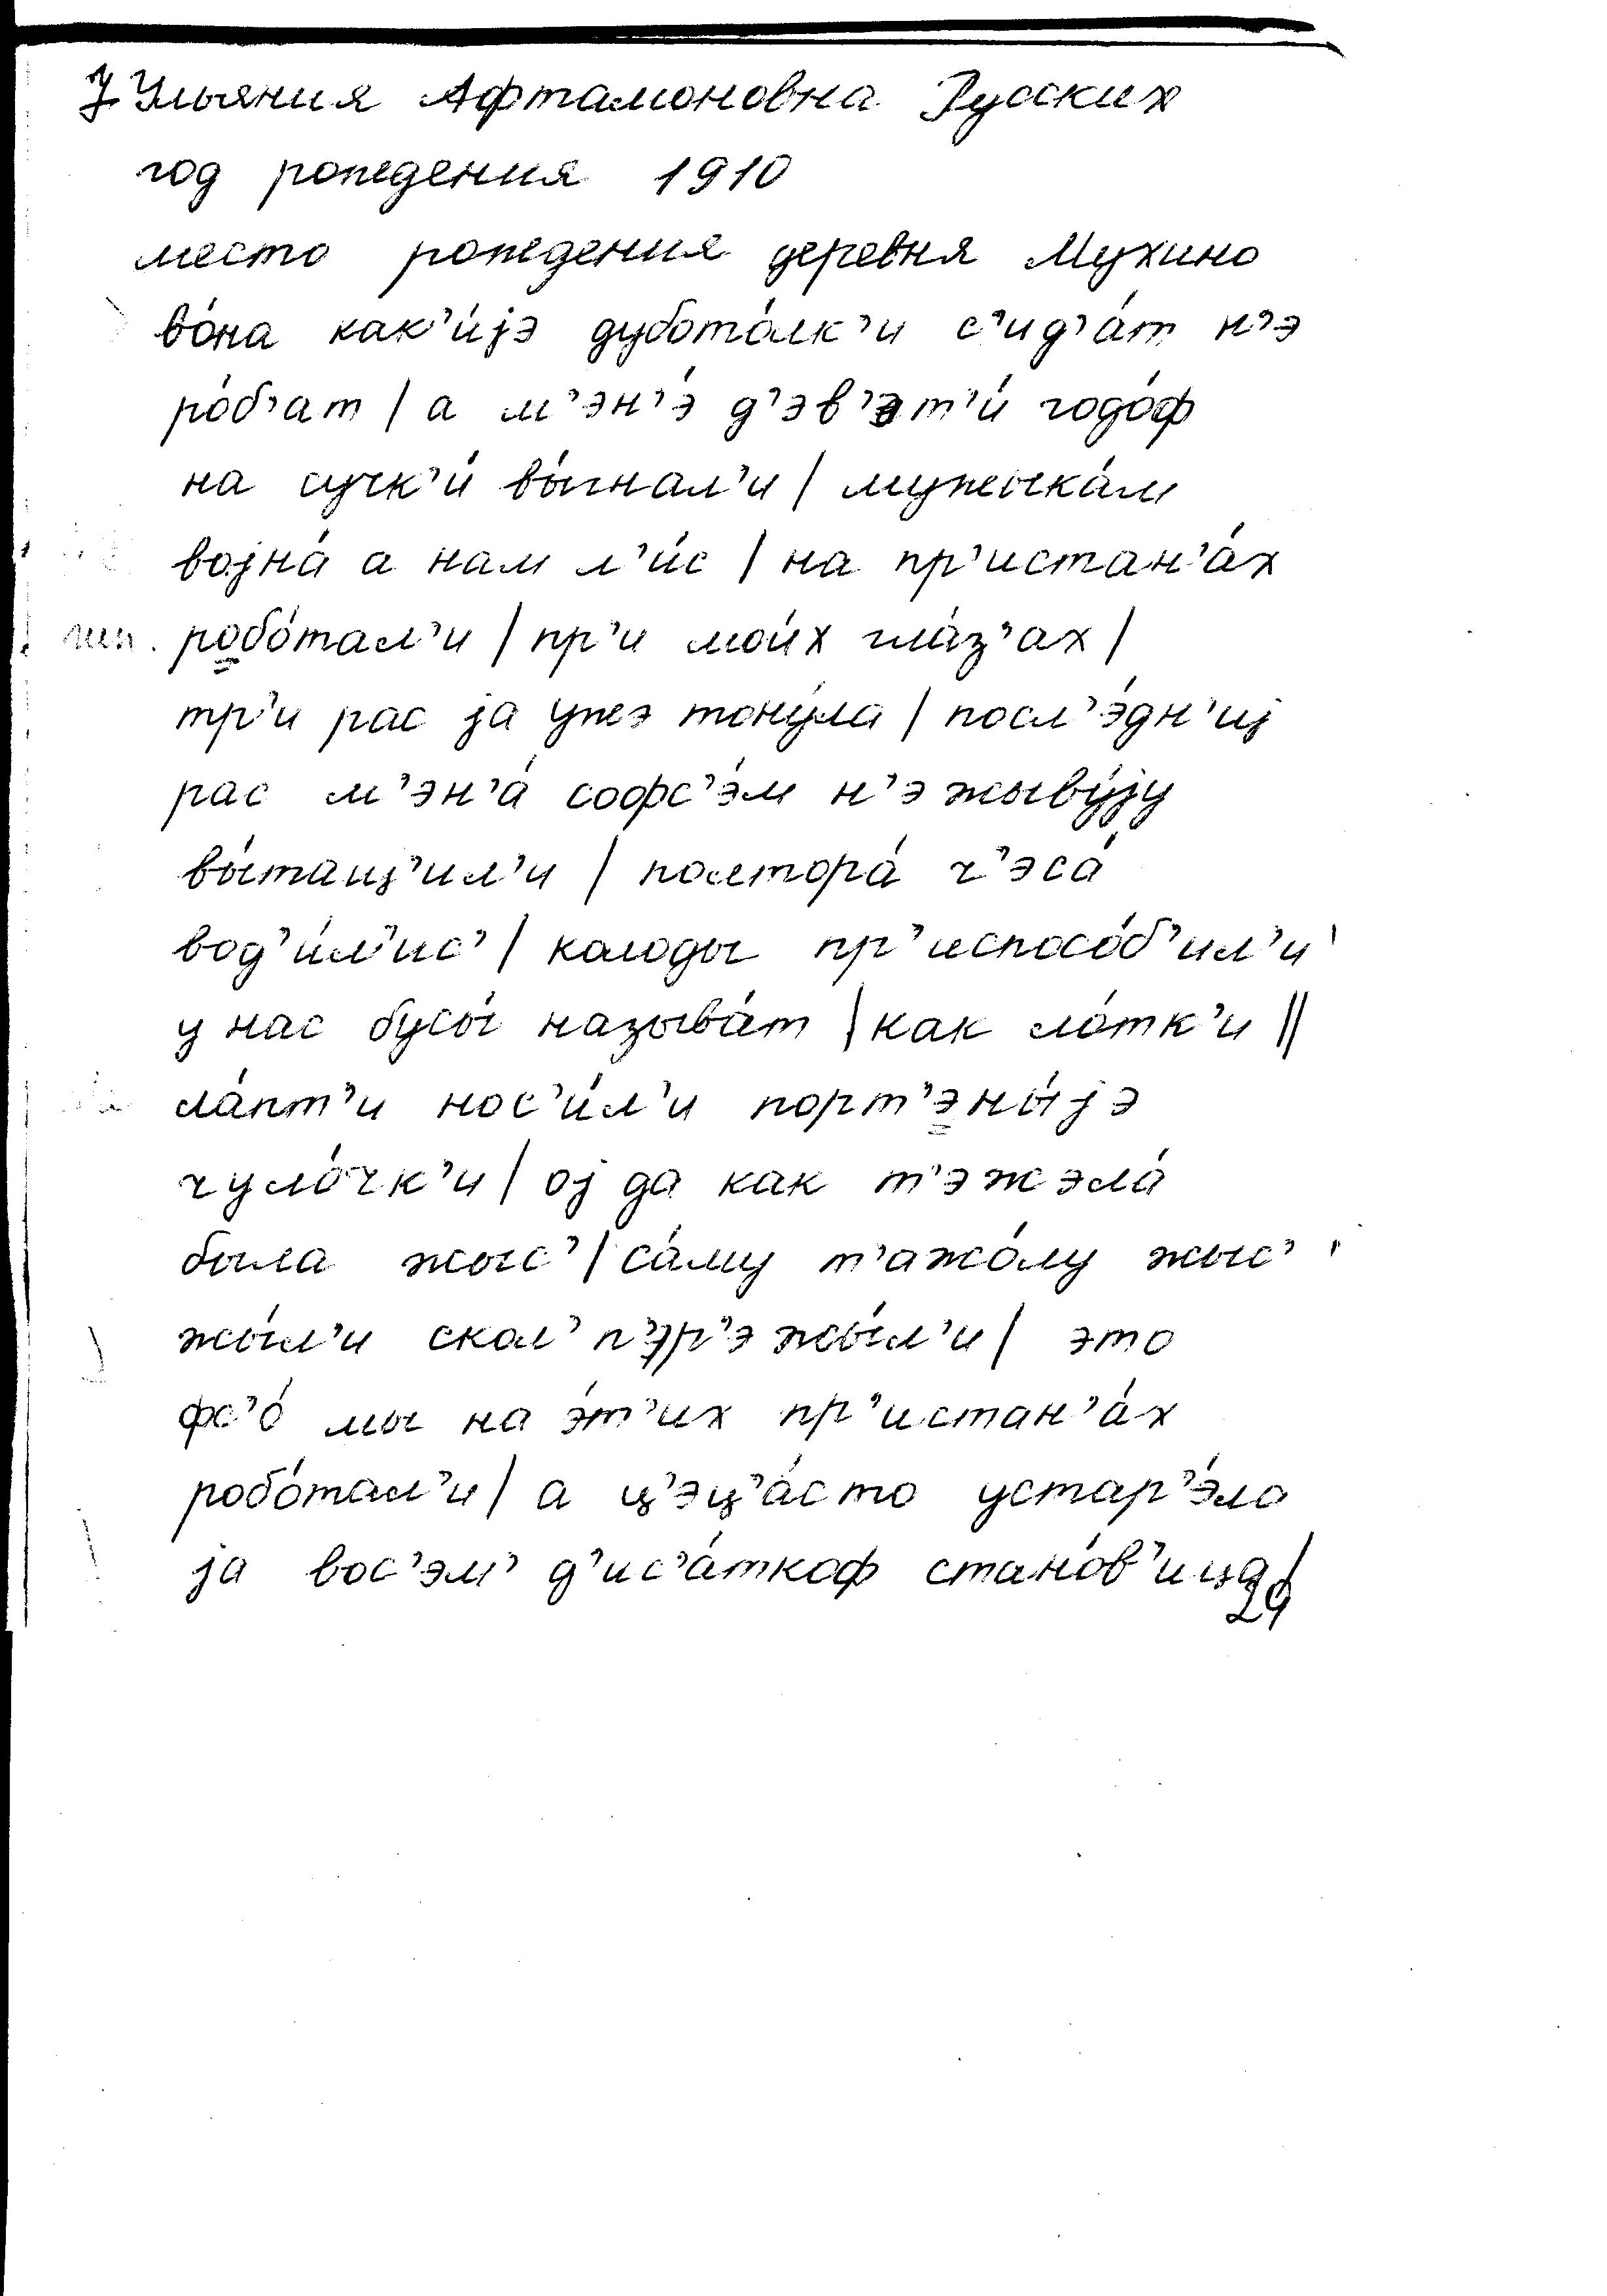 7 Ульяния Афтамоновна Русских
год рождения 1910
место рождения деревня Мухино
во́на как’и́јэ дубота́лк’и с’ид’а́т н’э
ро́б’ат | а м’эн’э́ д’эв’эт’и́ годо́ф
на сучк’и́ вы́гнал’и | мужыка́м
војна́ а нам л’и́с | на пр’истан’а́х
робо́тал’и | пр’и мои́х гла́з’ах |
тр’и рас ја ужэ тону́ла | посл’э́дн’иј
рас м’эн’а́ софс’э́м н’э жыву́ју
вы́тащ’ил’и | полтора́ ч’эса́
вод’и́л’ис’ | колоды пр’испосо́б’ил’и
у нас бусы́ называ́т | как ло́тк’и ||
ла́пт’и нос’и́л’и порт’эны́јэ
чуло́чк’и | ој да как т’эжэла́
была жыс’ | са́му т’ажо́лу жыс’
жы́л’и скол’ п’эр’эжы́л’и | это
фс’о́ мы на э́т’их пр’истан’а́х
робо́тал’и | а ц’эц’а́сто устар’э́ла
ја вос’эм’ д’ис’а́ткоф стано́в’ица |
29